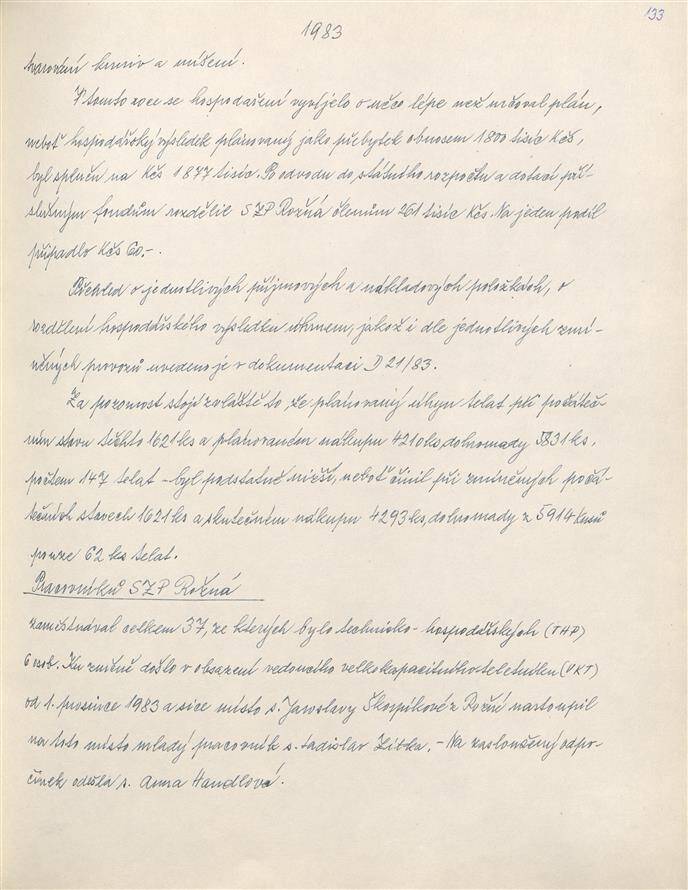 133
1983
krmiv a mísení.
V tomto roce se hospodaření vyvíjelo o něco lépe než určoval plán,
neboť hospodářský výsledek plánovaný jako přebytek obnosem 1800 tisíc Kčs,
byl splněn na Kčs 1877 tisíc. Po odvodu do státního rozpočtu a dotací pří-
slušným fondům rozdělil SZP Rožná členům 261 tisíc Kčs. Na jeden podíl
připadlo Kčs 60.-.
Přehled o jednotlivých příjmových a nákladových položkách, o
rozdělení hospodářského výsledku úhrnem, jakož i dle jednotlivých zmí-
něných provozů uvedeno je v dokumentaci D 21/83.
Za pozornost stojí zvláště to, že plánovaný úhyn telat při počáteč-
ním stavu těchto 1621 ks a plánovaném nákupu 4210 ks, dohromady 5831 ks,
počtem 147 telat - byl podstatně nižší, neboť činil při zmíněných počá-
tečních stavech 1621 ks a skutečném nákupu 4293 ks, dohromady z 5914 kusů
pouze 62 ks telat.
Pracovníků SZP Rožná
zaměstnával celkem 37, ze kterých bylo technicko-hospodářských (THP)
6 osob. Ku změně došlo v obsazení vedoucího velkokapacitního teletníku (VKT)
od 1. prosince 1983 a sice místo s. Jaroslavy Skorpíkové z Rožné nastoupil
na toto místo mladý pracovník s. Ladislav Žitka. - Na zasloužený odpo-
činek odešla s. Anna Handlová.